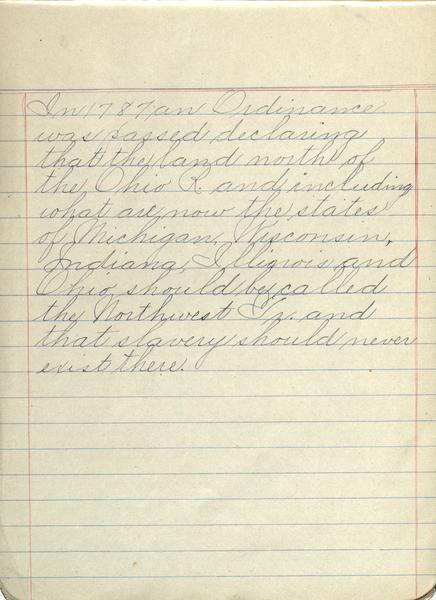 In 1787 an Ordinance
was passed declaring
that the land north of
the Ohio R. and including
what are now the states
of Michigan, Wisconsin,
Indiana, Illinois and
Ohio, should be called
the Northwest Tr. and
that slavery should never
exist there.